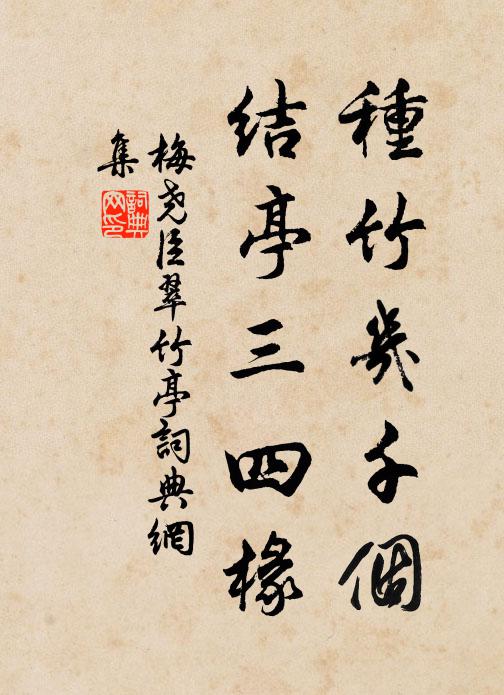 種竹幾千個
結亭三四椽
梅堯臣翠竹亭詞典網
集
詞典網印